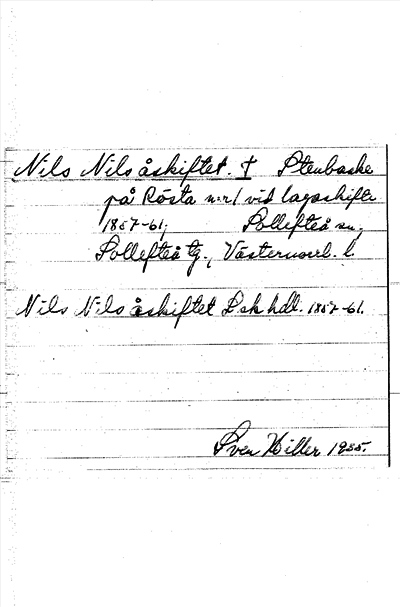 Nils Nilsåskiftet. † Stenbacke
på Rösta n:r 1 vid lagaskifte
1857-61, Sollefteå sn,
Sollefteå tg., Västernorrl. l.
Nils Nilsåskiftet L sk hdl. 1857-61.
Sven Hiller 1935.